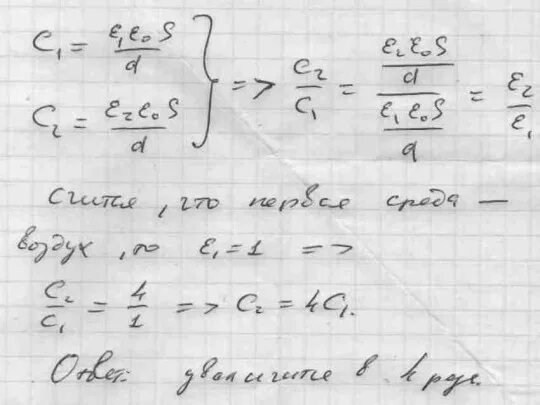 C₁ = ε₁ε₀S/d
C₂ = ε₂ε₀S/d } => C₂/C₁ = (ε₂ε₀S/d)/(ε₁ε₀S/d) = ε₂/ε₁
считая, что первая среда —
воздух, то ε₁=1 =>
C₂/C₁ = 4/1 => C₂ = 4C₁.
Ответ: увеличится в 4 раза.